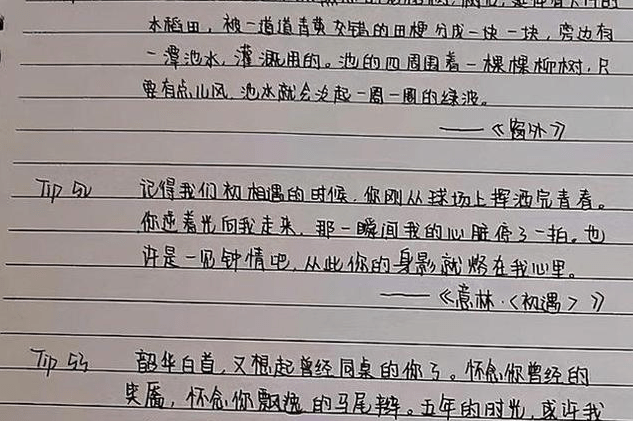 水稻田，被一道道青黄交错的田梗分成一块一块，旁边有
一潭池水，灌溉用的。池的四周围着一棵棵柳树，只
要有点儿风，池水就会泛起一圈一圈的绿波。
——《窗外》
Tip 52 记得我们初相遇的时候，你刚从球场上挥洒完青春。
你逆着光向我走来，那一瞬间我的心脏停了一拍。也
许是一见钟情吧，从此你的身影就烙在我心里。
——《意林·〈初遇〉》
Tip 53 韶华白首，又想起曾经同桌的你了。怀念你曾经的
笑靥，怀念你飘逸的马尾辫。五年的时光，或许我